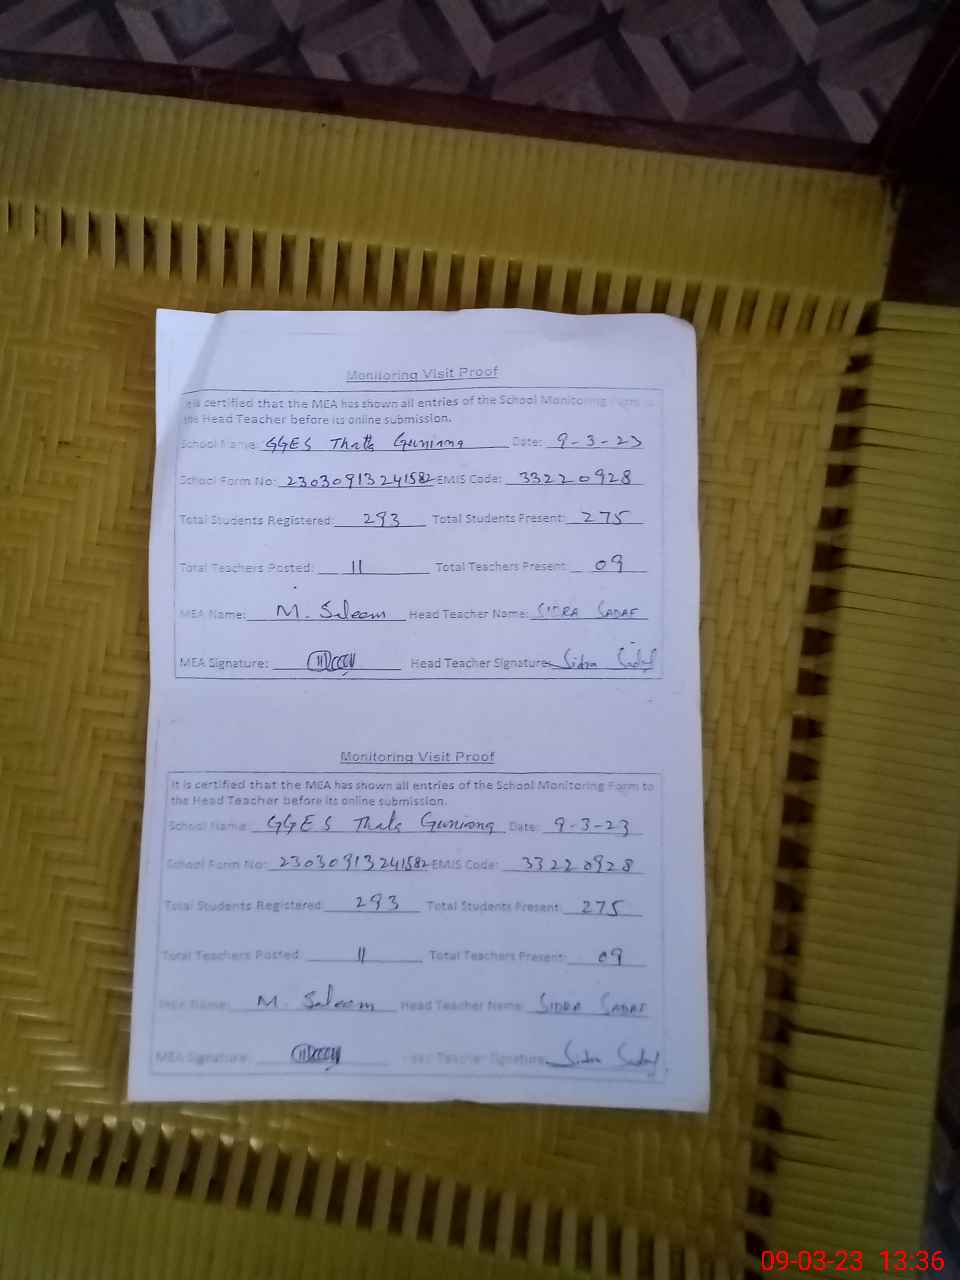 Monitoring Visit Proof
It is certified that the MEA has shown all entries of the School Monitoring Form to
the Head Teacher before its online submission.
School Name: GGES Thatta Gunirana Date: 9-3-23
School Form No: 23030913241582 EMIS Code: 33220928
Total Students Registered: 293 Total Students Present: 275
Total Teachers Posted: 11 Total Teachers Present: 09
MEA Name: M. Saleem Head Teacher Name: SIDRA SADAF
MEA Signature: Head Teacher Signature: Sidra Sadaf
Monitoring Visit Proof
It is certified that the MEA has shown all entries of the School Monitoring Form to
the Head Teacher before its online submission.
School Name: GGES Thatta Gunirana Date: 9-3-23
School Form No: 23030913241582 EMIS Code: 33220928
Total Students Registered: 293 Total Students Present: 275
Total Teachers Posted: 11 Total Teachers Present: 09
MEA Name: M. Saleem Head Teacher Name: SIDRA SADAF
MEA Signature: Head Teacher Signature: Sidra Sadaf
09-03-23 13:36